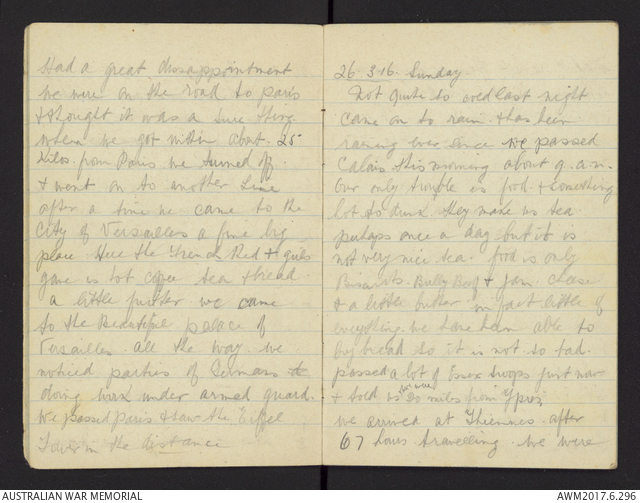 Had a great dissappointment
we were on the road to paris
& thought it was a sure thing
when we got within about 25
Kilos. from Paris we turned off
& went on to another line
after a time we came to the
city of Versailles a fine big
place. Here the French Red + girls
gave us hot coffee tea & bread.
a little further we came
to the Beautiful palace of
Versailles. all the way we
noticed parties of Germans
doing work under armed guard.
We passed paris & saw the Eiffel
Tower in the distance
26.3.16. Sunday.
Not quite so cold last night
came on to rain & has been
raining ever since we passed
Calais this morning about 9.a.m.
Our only trouble is food & something
hot to drink. They make us tea
perhaps once a day but it is
not very nice tea. food is only
Biscuits. Bully Beef & jam cheese
& a little butter in fact little of
everything. we have been able to
buy bread so it is not so bad.
passed a lot of Essex troops just now
& told us we were 20 miles from Ypres
we arrived at Thiennes after
67 hours travelling. We were
AUSTRALIAN WAR MEMORIAL
AWM2017.6.296